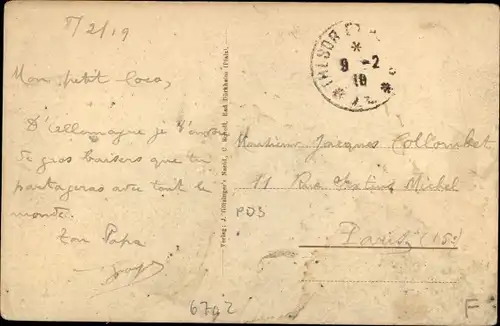 8/2/19
Mon petit coco,
D'Allemagne je t'envoie
de gros baisers que tu
partageras avec tout le
monde.
Ton Papa
TRESOR ET
9 - 2
19
Verlag: J. Rheinberger's Nachf., Bad Dürkheim (Pfalz).
Monsieur Jacques Collombet
11 Rue Michel
Paris (15e)
PDS
6702
F